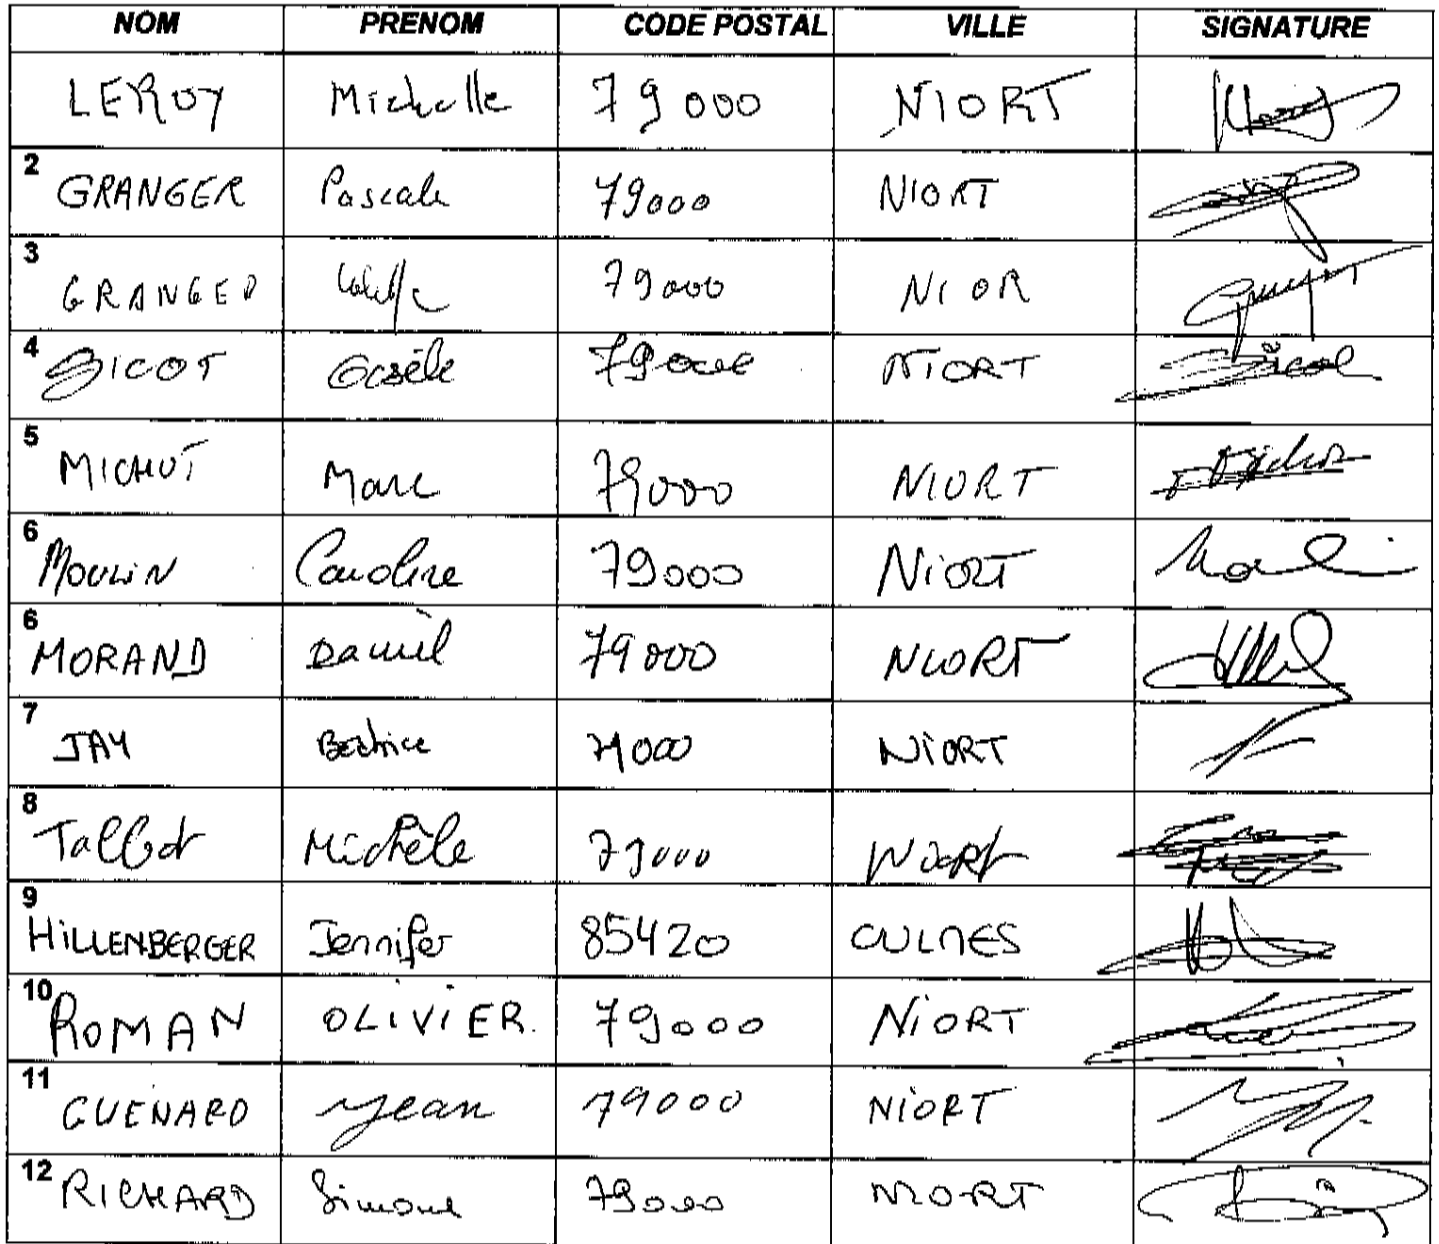 NOM PRENOM CODE POSTAL VILLE SIGNATURE
LEROY Michelle 79000 NIORT
2 GRANGER Pascale 79000 NIORT
3 GRANGER 79000 NIOR
4 BICOT Gisèle 79000 NIORT Bicot
5 MICHOT Marc 79000 NIORT
6 MOULIN Caroline 79000 NIORT
6 MORAND Daniel 79000 NIORT
7 JAY Béatrice 79000 NIORT
8 Talbot Michèle 79000 NIORT
9 HILLENBERGER Jennifer 85420 OULMES
10 ROMAN OLIVIER. 79000 NIORT
11 GUENARD Jean 79000 NIORT
12 RICHARD Simone 79000 NIORT